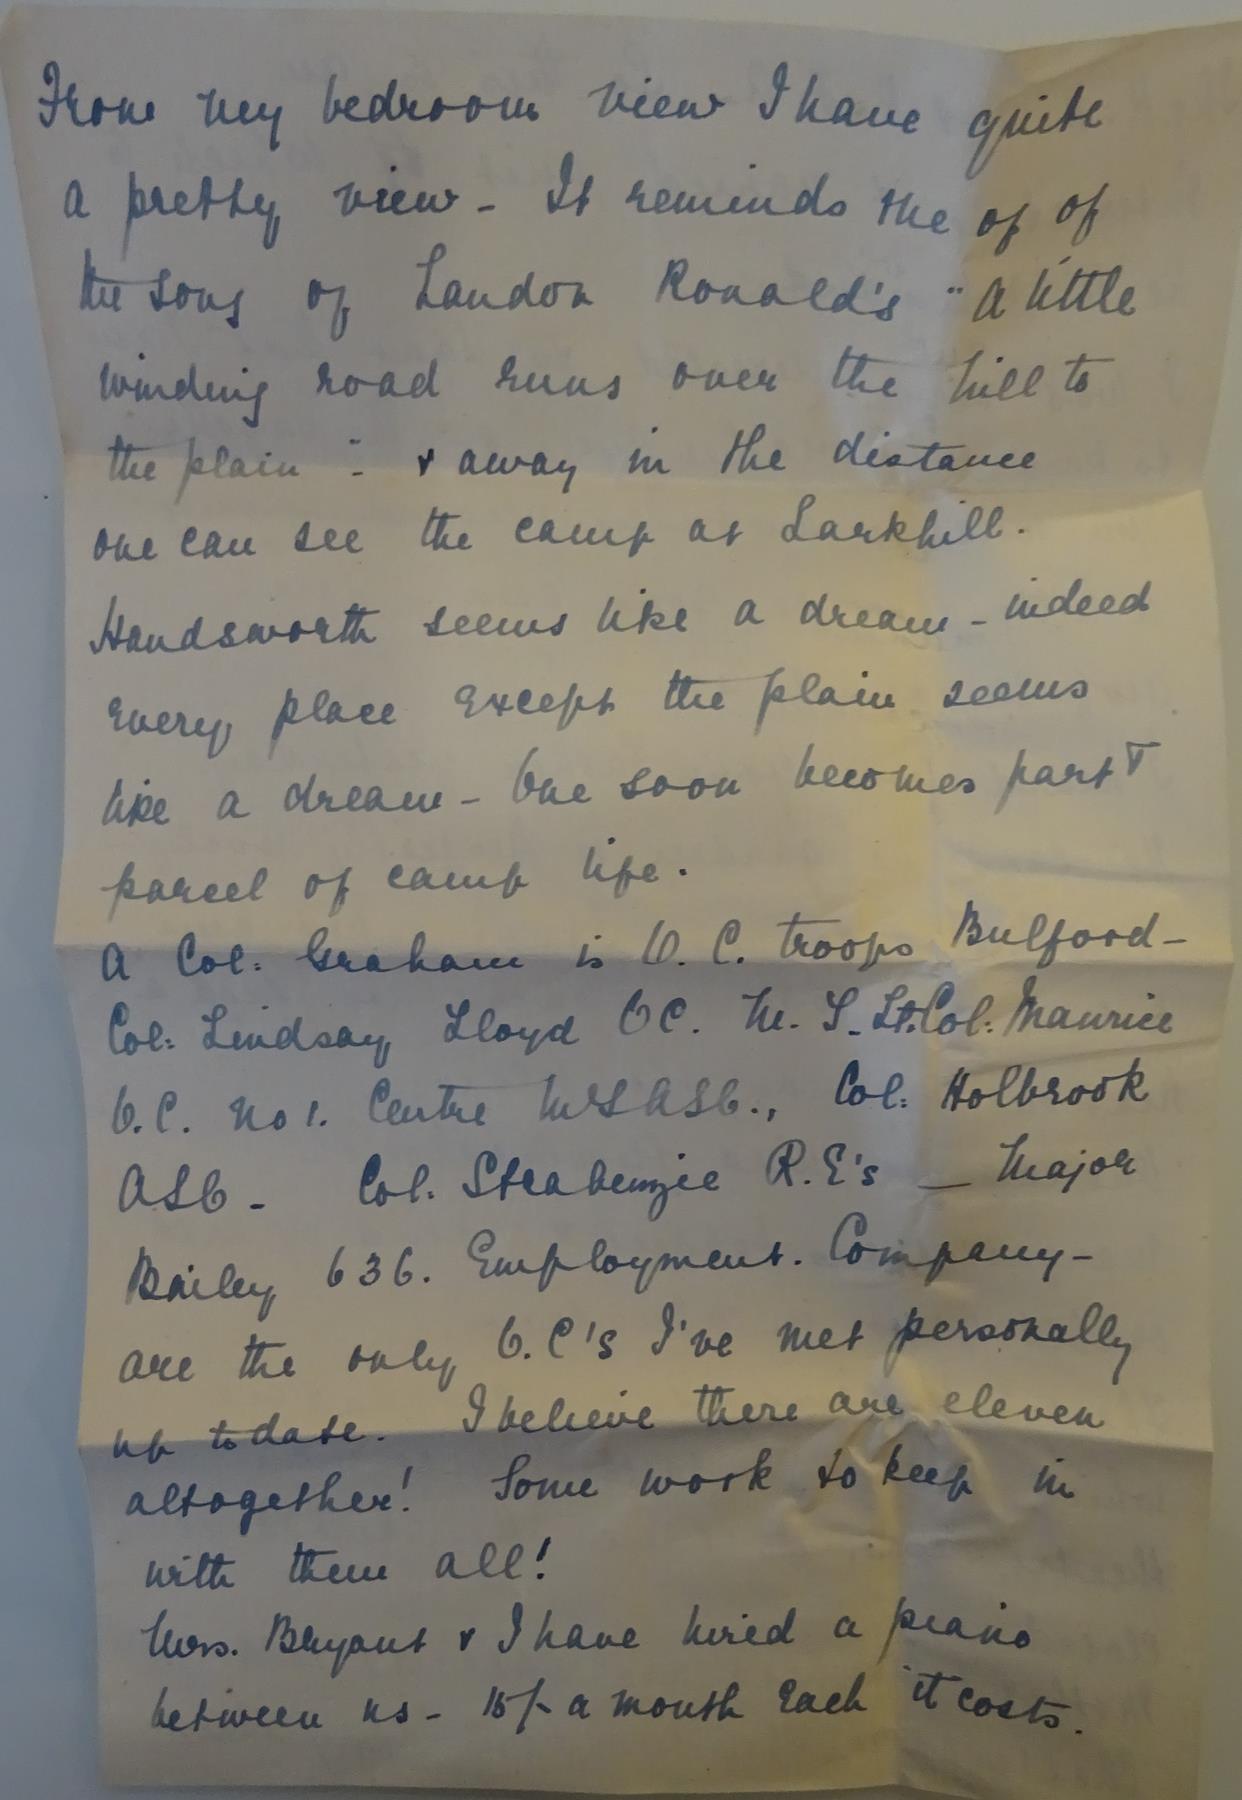 From my bedroom view I have quite
a pretty view - It reminds the of of
the song of Landon Ronald's "A little
winding road runs over the hill to
the plain" - & away in the distance
one can see the camp at Larkhill.
Handsworth seems like a dream - indeed
every place except the plain seems
like a dream - One soon becomes part &
parcel of camp life.
A Col: Graham is O.C. troops Bulford -
Col: Lindsay Lloyd OC. M.T. Lt. Col: Maurice
O.C. No 1. Centre MTASC., Col: Holbrook
ASC - Col. Straubenzie R.E's - Major
Bailey 636. Employment. Company -
are the only O.C's I've met personally
up to date. I believe there are eleven
altogether! Some work to keep in
with them all!
Mrs. Bryant & I have hired a piano
between us - 15/- a month each it costs.